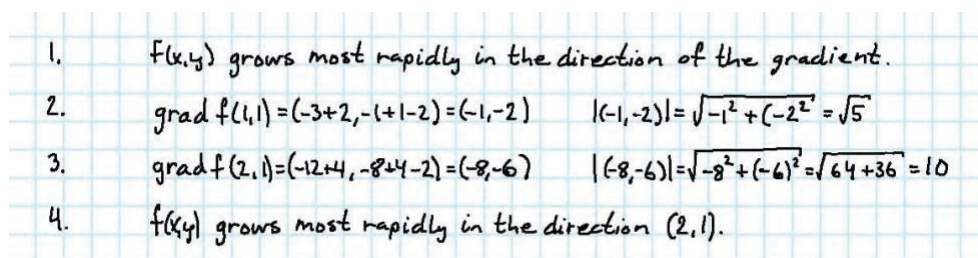 1. f(x,y) grows most rapidly in the direction of the gradient.
2. grad f(1,1) = (-3+2,-1+1-2) = (-1,-2) |(-1,-2)| = √-1² + (-2² = √5
3. grad f (2,1)=(-12+4, -8+4-2) = (-8,-6) |(-8,-6)| = √-8² + (-6)² = √64+36 = 10
4. f(x,y) grows most rapidly in the direction (2,1).